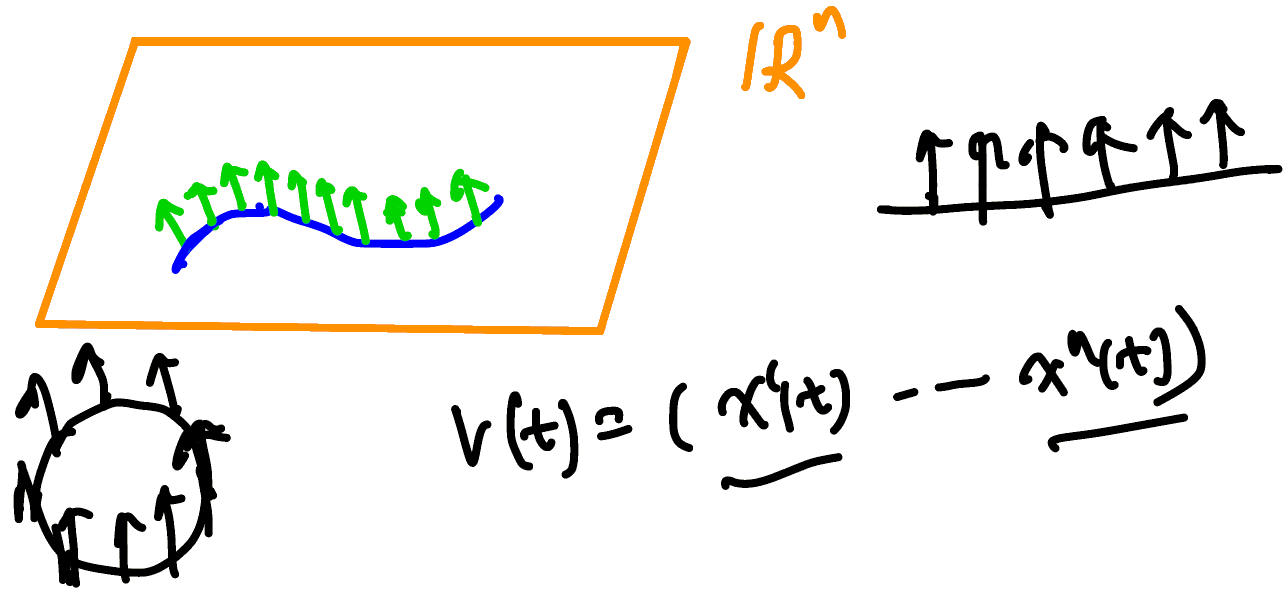 ℝⁿ
V(t) = ( x¹(t) --- xⁿ(t) )